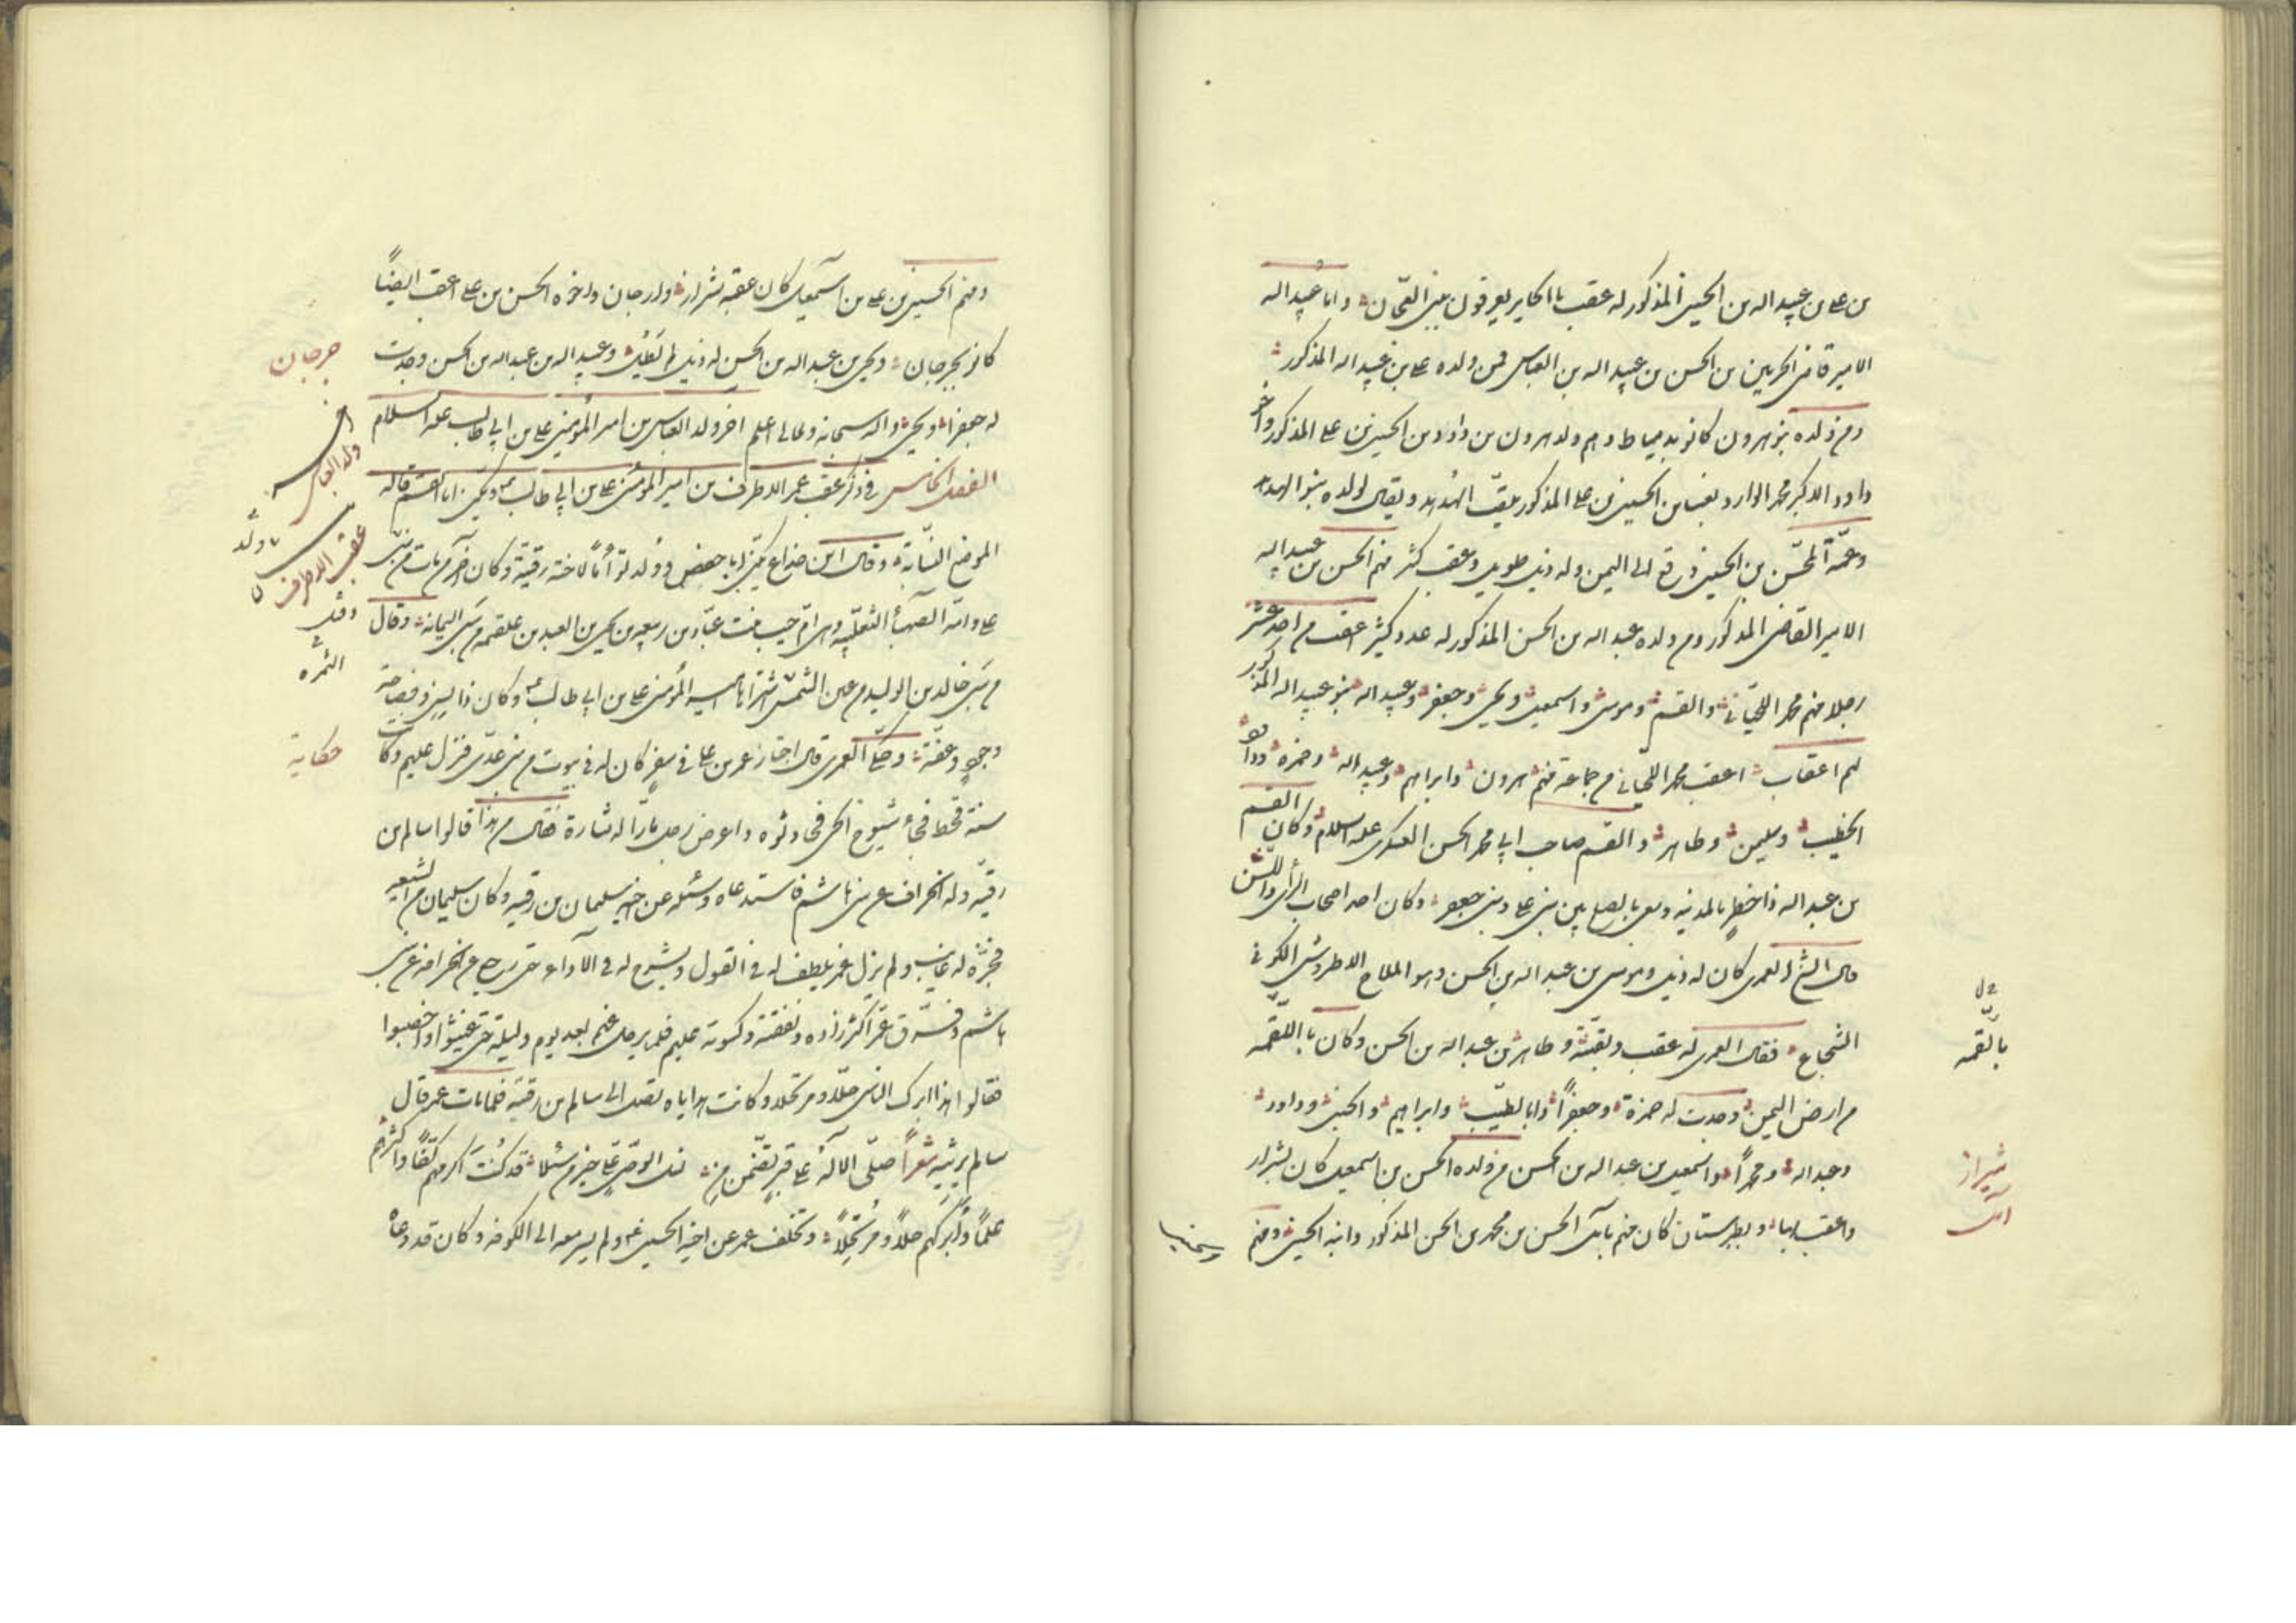 بن علي بن عبيد اله بن الحسين المذكور له عقب بالحاير يعرفون ببني العجان واما عبيد اله
الامير قاضي الحرمين بن الحسن بن عبيد اله بن العباس فمن ولده علي بن عبيد اله المذكور
ومن ولده بنو هرون كانو بدمياط وهم ولد هرون بن داود بن الحسين بن علي المذكور واخو
داود الاكبر محمد الوارد بفسا بن الحسين بن علي المذكور يلقّب الهُدهد ويقال لولده بنو الهدهد
وعمّه المحسّن بن الحسين وقع الى اليمن وله ذيل طويل وعقب كثير منهم الحسن بن عبيد اله
الامير القاضي المذكور ومن ولده عبد اله بن الحسن المذكور له عدد كثير اعقب من احد عشر
رجلا منهم محمد اللحياني والقسم وموسى واسمعيل ويحيى وجعفر وعبيد اله بنو عبد اله المذكور
لهم اعقاب اعقب محمد اللحياني من جماعة منهم هرون وابراهيم وعبيد اله وحمزه وداود
الخطيب وسليمن وطاهر والقسم صاحب ابي محمد الحسن العسكري عليه السلام وكان القسم
بن عبد اله ذا خطر بالمدينه وسعى بالصلح بين بني علي وبني جعفر وكان احد اصحاب الرأي واللسن
قال الشيخ العمري كان له ذيل وموسى بن عبد اله بن الحسن وهو الملاح الاطروش الكوفي
الشجاع فقال العمري له عقب وبقيّة وطاهر بن عبد اله بن الحسن وكان باللقمه
من ارض اليمن وجدت له حمزة وجعفراً وابا الطيّب وابراهيم والحسن وداود
وعبد اله ومحمداً واسمعيل بن عبد اله بن الحسن من ولده الحسن بن اسمعيل كان بشيراز
واعقب بها وبطبرستان كان منهم بآمل الحسن بن محمد بن الحسن المذكور وابنه الحسين ومنهم
بالقمه
شيراز
آمل
ومنهم الحسين بن علي بن اسمعيل كان عقبه بشيراز وارجان واخوه الحسن بن علي اعقب ايضاً
كانو بجرجان ويحيى بن عبد اله بن الحسن له ذيل لم يَطُل وعبيد اله بن عبد اله بن الحسن وجدت
له جعفرا ويحيى واله سبحانه وتعالى اعلم اخر ولد العباس بن امير المؤمنين علي بن ابي طالب عليه السلام
الفصل الخامس في ذكر عقب عمر الاطرف بن امير المؤمنين علي بن ابي طالب ويكنى ابا القسم قاله
الموضح النسّابة وقال ابن خداع يكنى ابا حفص وولد توأماً لاخته رقيّة وكان آخر من مات من بني
علي وامّه الصهباء الثعلبيّه وهي امّ حبيب بنت عبّاد بن ربيعه بن يحيى بن العبد بن علقمه من سبي اليمامة وقال
من سبي خالد بن الوليد من عين التمر اشتراها امير المؤمنين علي بن ابي طالب وكان ذا لسنٍ وفصاحة
وجودٍ وعفّة وحكى العمري قال اجتاز عمر بن علي في سفرٍ كان له في بيوت من بني عدّي فنزل عليهم وكانت
سنة قحط فجاء شيوخ الحي فحادثوه واعرض رجل مارّا له شارة فقال من هذا قالوا سالم بن
رقيّة وله انحراف عن بني هاشم فاستدعاه وسئله عن اخيه سليمان بن رقيه وكان سليمان من الشيعة
فخبّره انه غايب ولم يزل عمر يلطف له في القول ويشرح له في الآداء حتى رجع عن انحرافه عن بني
هاشم وفرّق عمر اكثر زاده ونفقته وكسوته عليهم فلم يرحل عنهم بعد يوم وليلة حتى غيثوا واخصبوا
فقالوا هذا ابرك الناس حلّاً ومرتحلا وكانت هداياه تصل الى سالم بن رقيّة فلما مات عمر قال
سالم يرثيه شعراً صلّى الاله على قبرٍ تضمّن من نسل الوصيّ عليّ خير من سئلا قد كنتَ اكرمهم كفّاً واكثرهم
علماً وابركهم حلاً ومرتحلاً وتخلف عمر عن اخيه الحسين ولم يسر معه الى الكوفه وكان قد دعاه
جرجان
اخر
ولد العباس
عقب الاطرف
حكاية